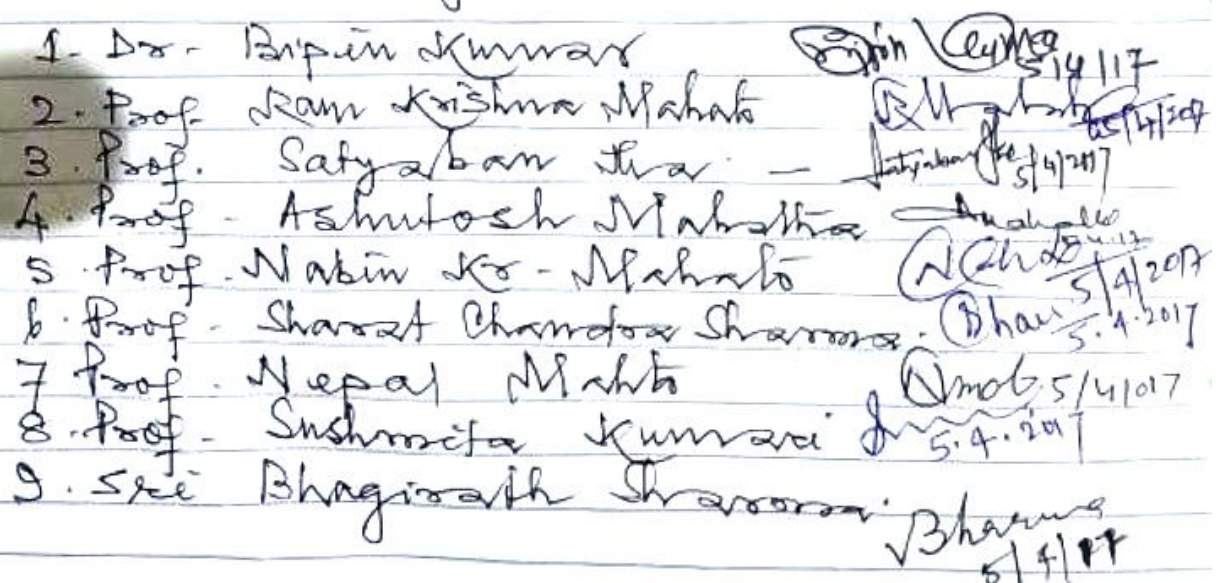 1. Dr. Bipin Kumar Bipin Kumar 5/4/17
2. Prof. Ram Krishna Mahato RMahato 05/4/2017
3. Prof. Satyaban Jha - Satyaban Jha 5/4/2017
4. Prof. Ashutosh Mahatha
5. Prof. Nabin Kr. Mahato 5/4/2017
6. Prof. Sharat Chandra Sharma. 5.4.2017
7 Prof. Nepal Mahto 5/4/017
8. Prof. Sushmita Kumari 5.4.2017
9. Sri Bhagirath Sharma. 5/4/17